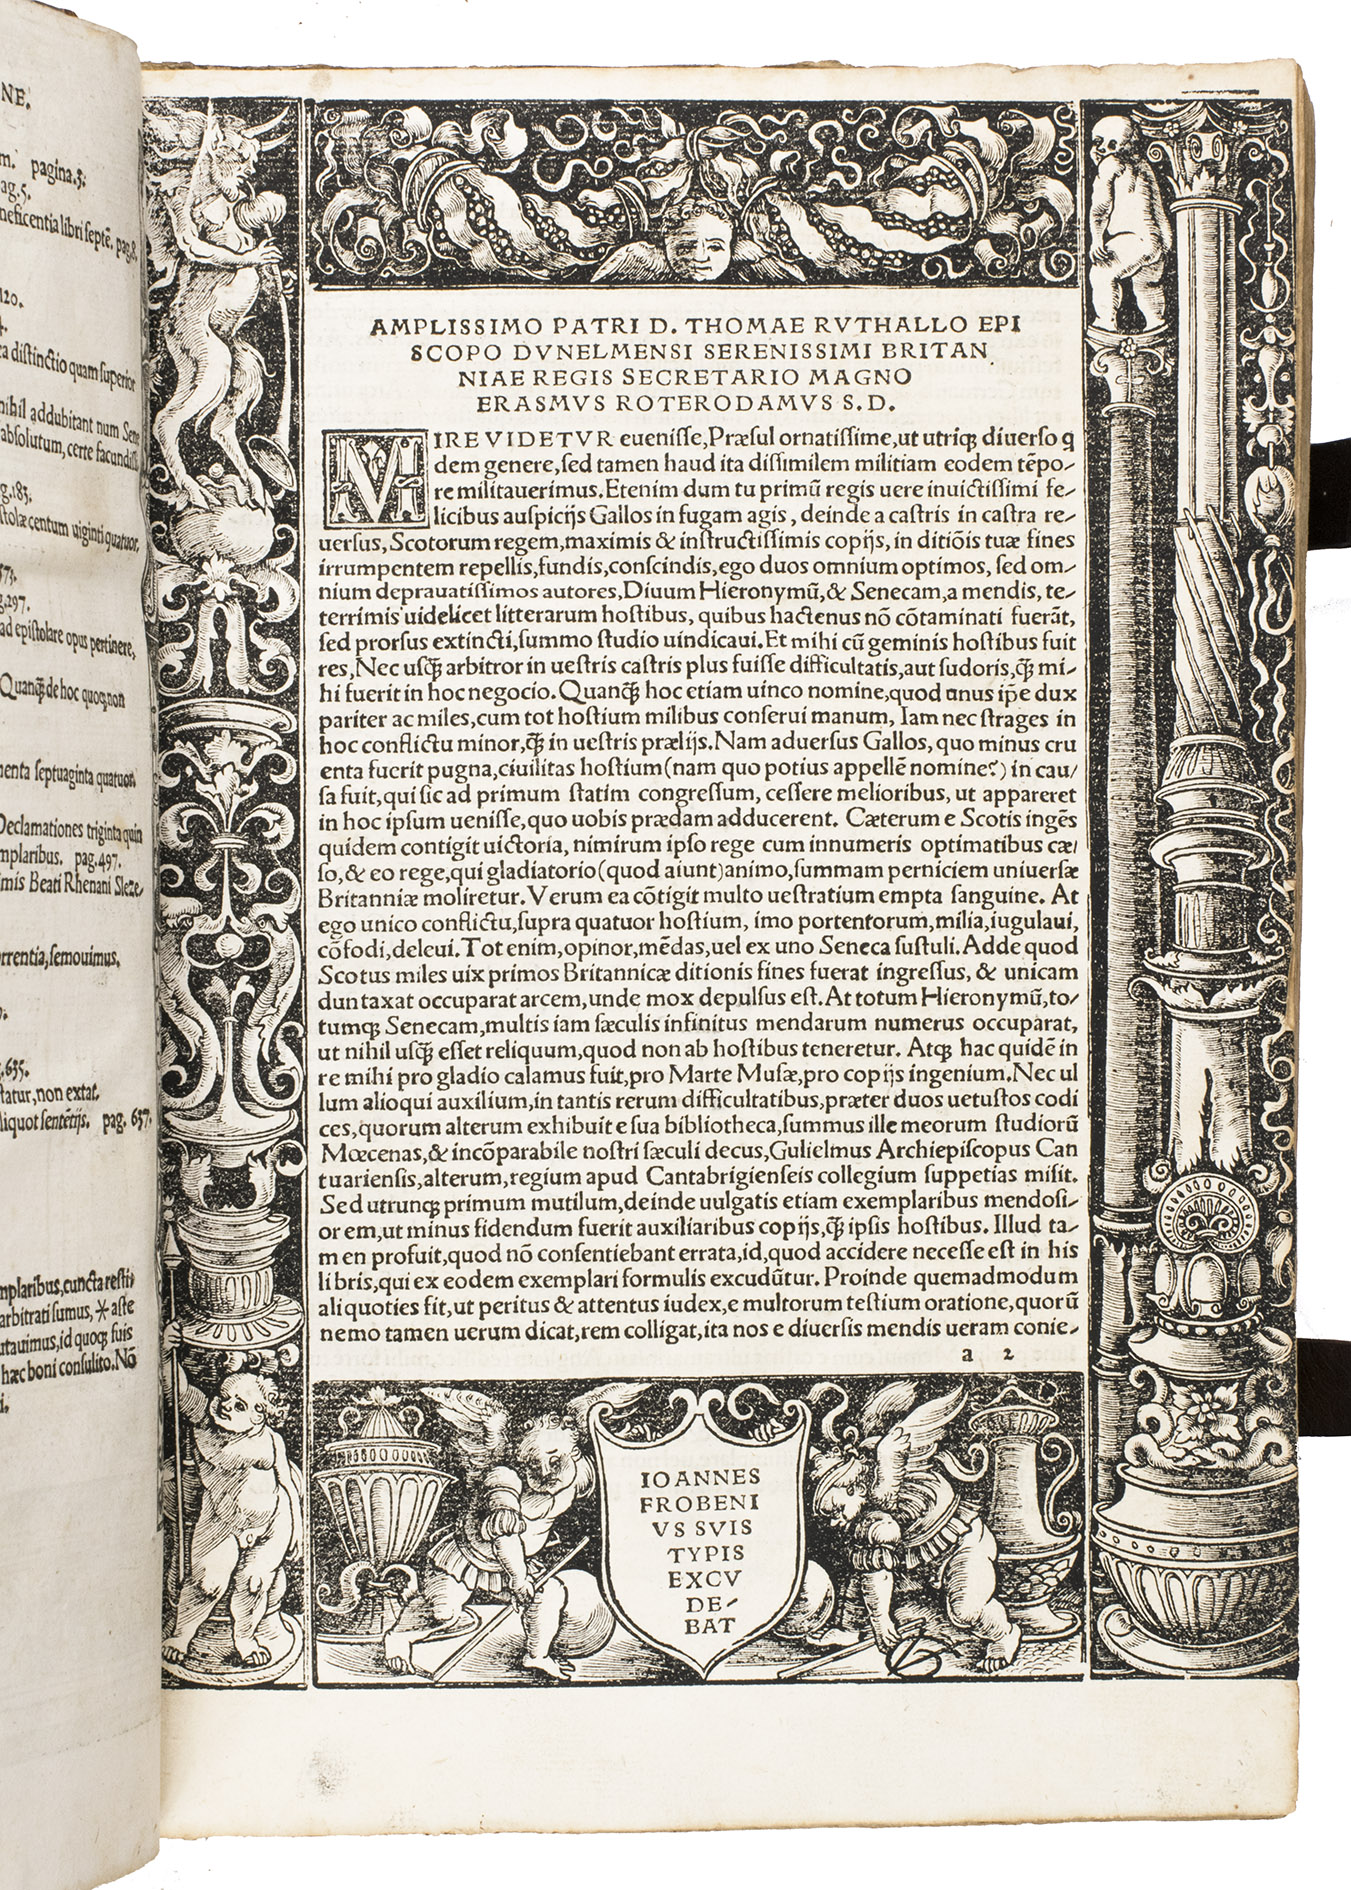 NE.
m. pagina.3.
ag.5.
neficentia libri septē, pag.8.
120.
4.
ea distinctio quam superior
nihil addubitant num Sene
absolutum, certe facundiss.
g.183.
stolæ centum uiginti quatuor,
g.297.
ad epistolare opus pertinere,
Quanq̃ de hoc quoq; non
menta septuaginta quatuor.
Declamationes triginta quin
mplaribus. pag.497.
imis Beati Rhenani Sleze-
rrentia, semouimus.
g.635.
tatur, non extat.
liquot sentētijs. pag. 637.
mplaribus, cuncta resti-
arbitrati sumus, * aste
utauimus, id quoq; suis
hæc boni consulito. Nō
i.
AMPLISSIMO PATRI D. THOMAE RVTHALLO EPI
SCOPO DVNELMENSI SERENISSIMI BRITAN
NIAE REGIS SECRETARIO MAGNO
ERASMVS ROTERODAMVS S.D.
MIRE VIDETVR euenisse, Præsul ornatissime, ut utriq; diuerso q
dem genere, sed tamen haud ita dissimilem militiam eodem tēpo-
re militauerimus. Etenim dum tu primū regis uere inuictissimi fe-
licibus auspicijs Gallos in fugam agis, deinde a castris in castra re-
uersus, Scotorum regem, maximis & instructissimis copijs, in ditiōis tuæ fines
irrumpentem repellis, fundis, conscindis, ego duos omnium optimos, sed om-
nium deprauatissimos autores, Diuum Hieronymū, & Senecam, a mendis, te-
terrimis uidelicet litterarum hostibus, quibus hactenus nō cōtaminati fuerāt,
sed prorsus extincti, summo studio uindicaui. Et mihi cū geminis hostibus fuit
res, Nec usq̃ arbitror in uestris castris plus fuisse difficultatis, aut sudoris, q̃ mi-
hi fuerit in hoc negocio. Quanq̃ hoc etiam uinco nomine, quod unus ip̃e dux
pariter ac miles, cum tot hostium milibus conserui manum, Iam nec strages in
hoc conflictu minor, q̃ in uestris prælijs. Nam aduersus Gallos, quo minus cru
enta fuerit pugna, ciuilitas hostium (nam quo potius appellē nomine?) in cau-
sa fuit, qui sic ad primum statim congressum, cessere melioribus, ut appareret
in hoc ipsum uenisse, quo uobis prædam adducerent. Cæterum e Scotis ingēs
quidem contigit uictoria, nimirum ipso rege cum innumeris optimatibus cæ-
so, & eo rege, qui gladiatorio (quod aiunt) animo, summam perniciem uniuersæ
Britanniæ moliretur. Verum ea cōtigit multo uestratium empta sanguine. At
ego unico conflictu, supra quatuor hostium, imo portentorum, milia, iugulaui,
cōfodi, deleui. Tot enim, opinor, mēdas, uel ex uno Seneca sustuli. Adde quod
Scotus miles uix primos Britannicæ ditionis fines fuerat ingressus, & unicam
duntaxat occuparat arcem, unde mox depulsus est. At totum Hieronymū, to-
tumq; Senecam, multis iam sæculis infinitus mendarum numerus occuparat,
ut nihil usq̃ esset reliquum, quod non ab hostibus teneretur. Atq; hac quidē in
re mihi pro gladio calamus fuit, pro Marte Musæ, pro copijs ingenium. Nec ul
lum alioqui auxilium, in tantis rerum difficultatibus, præter duos uetustos codi
ces, quorum alterum exhibuit e sua bibliotheca, summus ille meorum studiorū
Mœcenas, & incōparabile nostri sæculi decus, Gulielmus Archiepiscopus Can
tuariensis, alterum, regium apud Cantabrigienseis collegium suppetias misit.
Sed utrunq; primum mutilum, deinde uulgatis etiam exemplaribus mendosi-
orem, ut minus fidendum fuerit auxiliaribus copijs, q̃ ipsis hostibus. Illud ta-
men profuit, quod nō consentiebant errata, id, quod accidere necesse est in his
libris, qui ex eodem exemplari formulis excudūtur. Proinde quemadmodum
aliquoties fit, ut peritus & attentus iudex, e multorum testium oratione, quorū
nemo tamen uerum dicat, rem colligat, ita nos e diuersis mendis ueram conie-
a 2
IOANNES
FROBENI
VS SVIS
TYPIS
EXCV
DE-
BAT